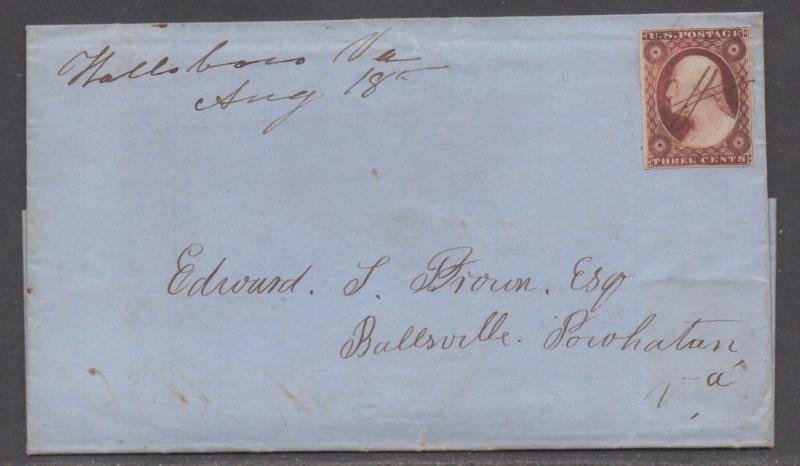 Wallsboro Va
Aug 18th
U.S. POSTAGE
THREE CENTS
Edward. S. Brown. Esq
Ballsville. Powhatan
Va